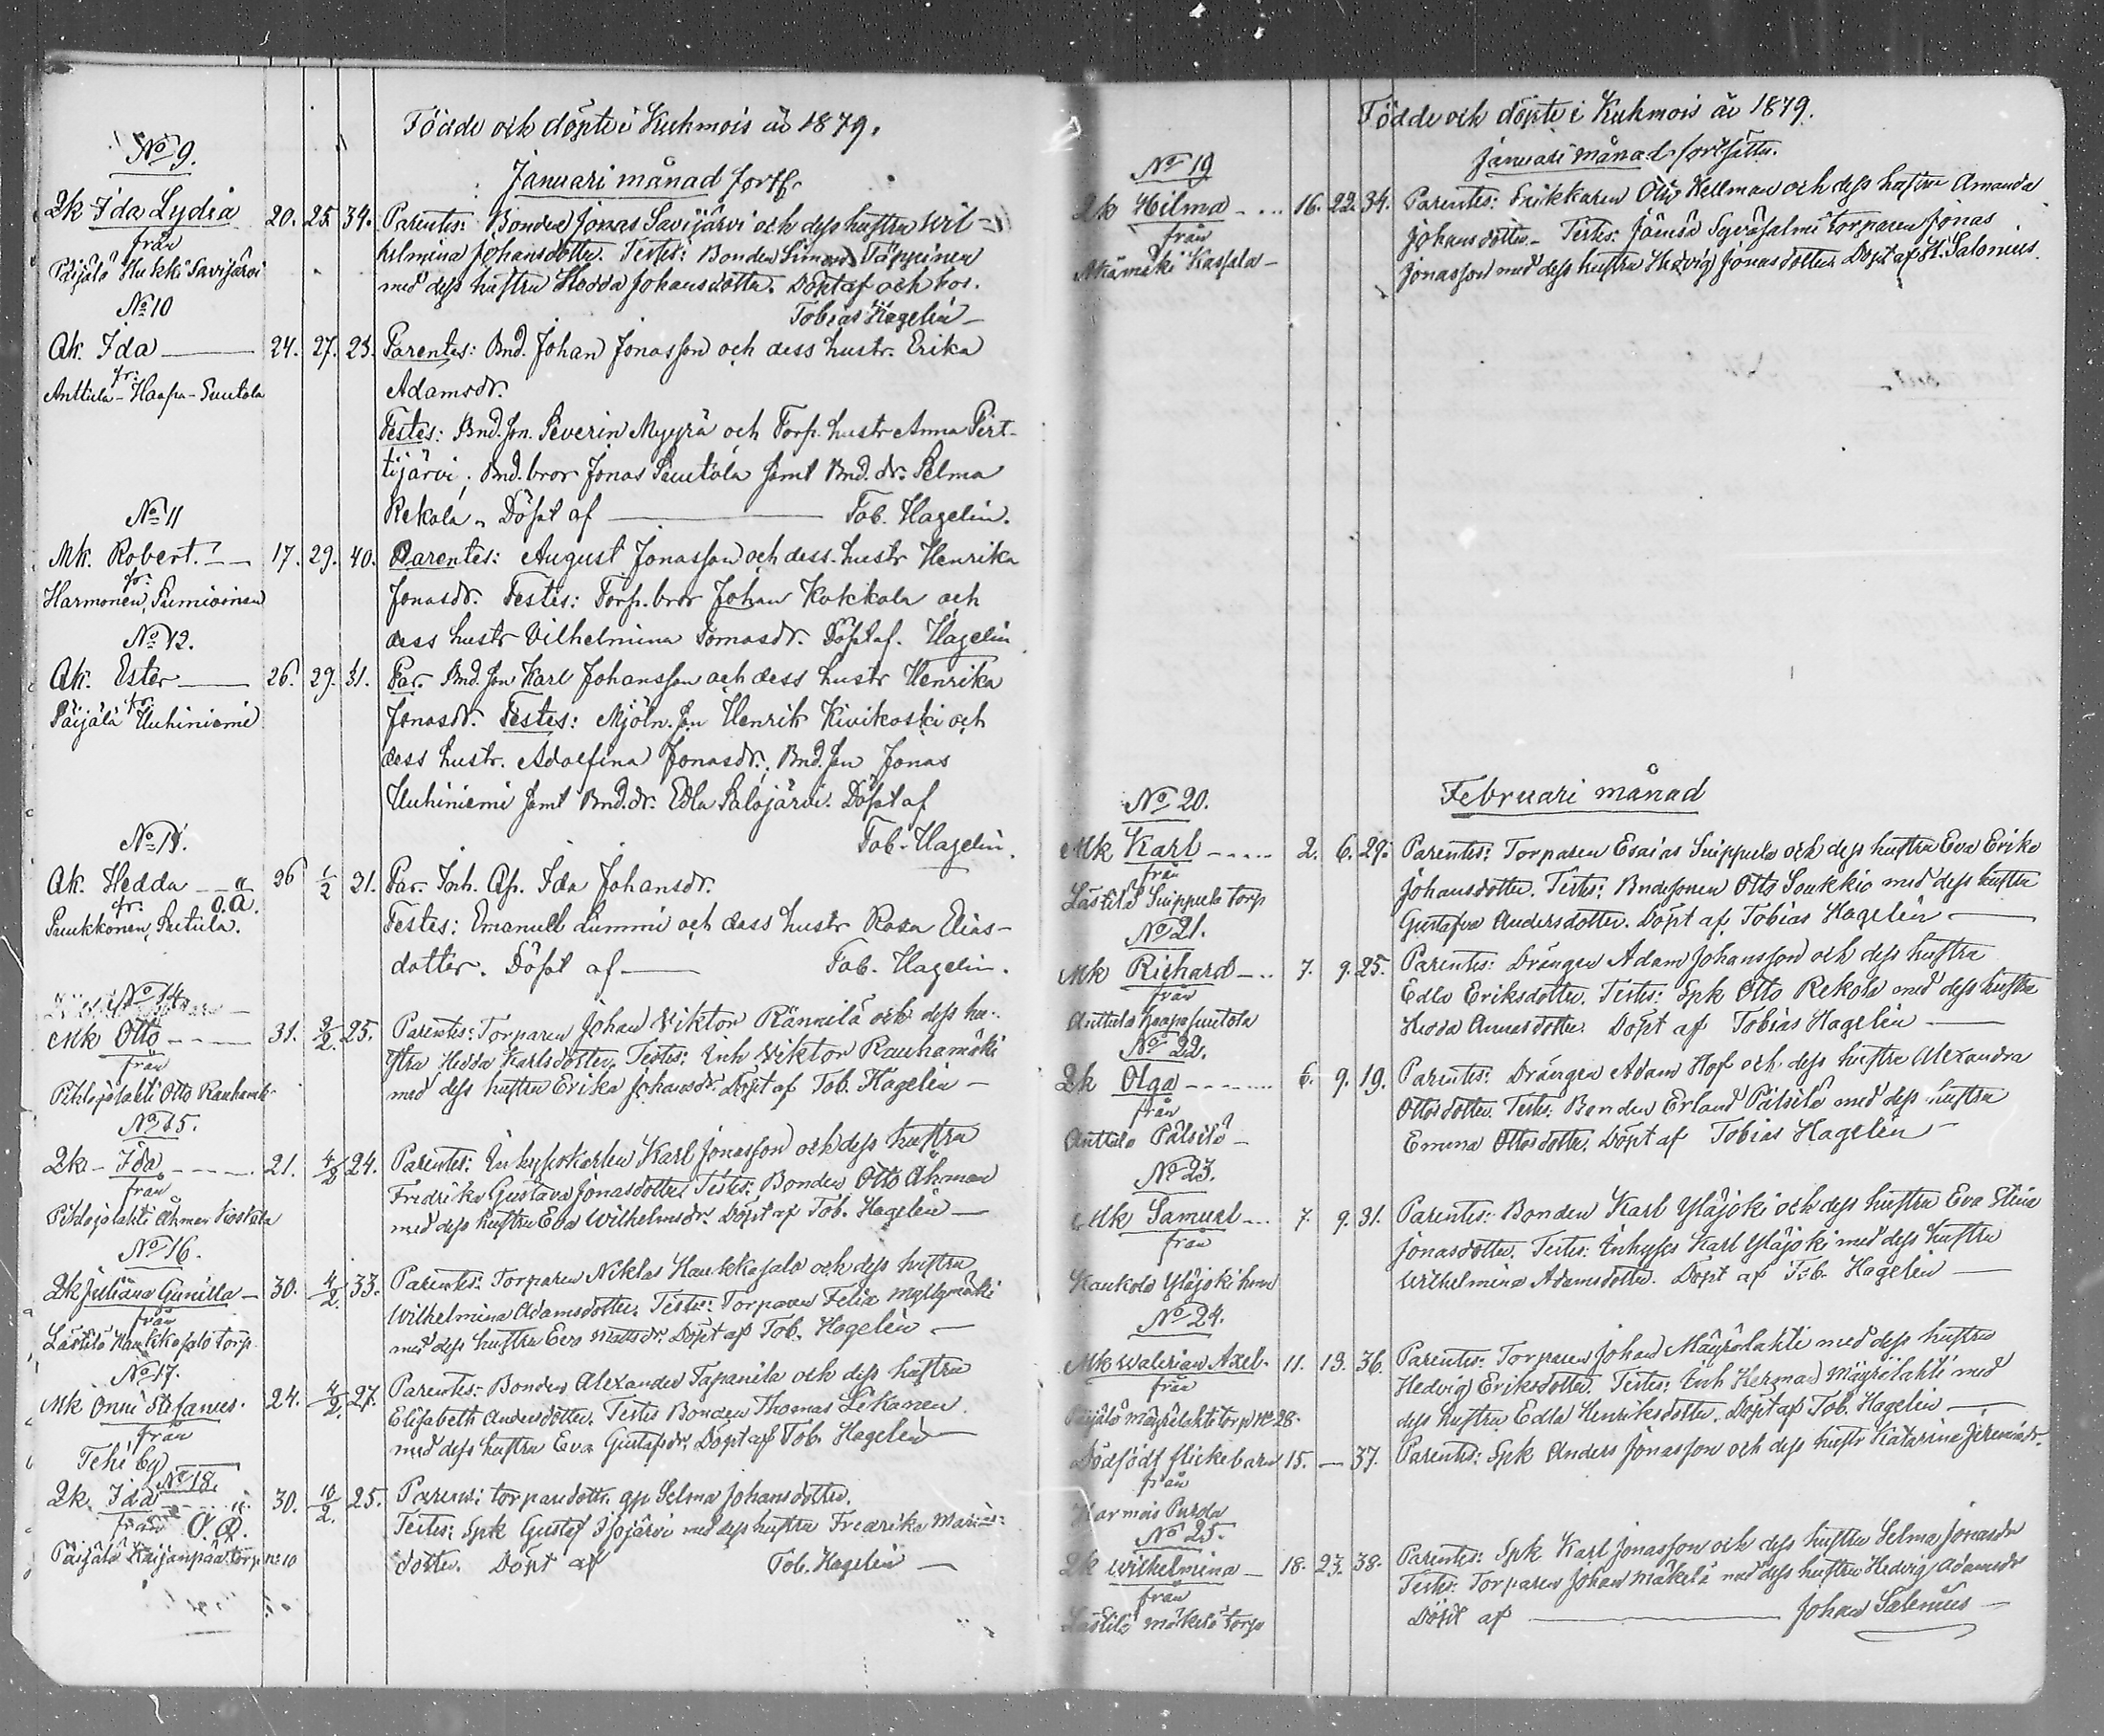 Födde och döpte i Kuhmois år 1879.
Januari månad forts.
No 9.
Qk Ida Lydia 20. 25. 34. Parentes: Bonden Jonas Savijärvi och dess hustru Wil-
från
helmina Johansdotter. Testes: Bonden Simon Täppinen
Päijälä Hukki Savijärvi
med dess hustru Hedda Johansdotter. Döpt af och hos.
Tobias Hagelin
No 10
Qk. Ida 24. 27. 23. Parentes: Bnd. Johan Jonasson och dess hustr. Erika
fr:
Anttula-Haapa-Suutola
Adamsdr.
Testes: Bnd.son. Severin Myyrä och Torp. hustr Anna Pirt-
tijärvi, Bnd. bror Jonas Suutola samt Bnd. dr. Selma
Rekola. Döpt af Tob. Hagelin.
No 11
Mk. Robert. 17. 29. 40. Parentes: August Jonasson och dess hustr Henrika
fr:
Harmonen,
Jonasdr. Testes: Torp. bror Johan Kokkola och
dess hustr Vilhelmina Tomasdr. Döpt af. Hagelin
No 12.
Qk. Ester 26. 29. 31. Par. Bnd. son Karl Johansson och dess hustr Henrika
fr:
Päijälä Huhiniemi
Jonasdr. Testes: Mjöln. son Henrik Kivikoski och
dess hustr. Adolfina Jonasdr., Bnd. son Jonas
Huhiniemi samt Bnd. dr. Edla Salojärvi. Döpt af
Tob. Hagelin.
No 13.
Qk. Hedda o.ä. 26 1/2 21. Par. Inh. Qp. Ida Johansdr.
fr:
Puukkonen,
Testes: Emanuel Lummi och dess hustr Rosa Elias-
dotter. Döpt af Tob. Hagelin.
No 14.
Mk Otto 31. 2/2. 25. Parentes: Torparen Johan Viktor Rännilä och dess hu-
från
stru Hedda Karlsdotter. Testes: Inh Viktor Rauhamäki
Pihlajalahti Otto Rauham.
med dess hustru Erika Johansdr. Döpt af Tob. Hagelin
No 15.
Qk- Ida 21. 4/2 24. Parentes: Inhyseskarlen Karl Jonasson och dess hustru
från
Fredrika Gustava Jonasdotter. Testes: Bonden Otto Åhman
Pihlajalahti Åhman Koskela
med dess hustru Eva Wilhelmsdr. Döpt af Tob. Hagelin
No 16.
Qk Juliana Gunilla 30. 4/2. 33. Parentes: Torparen Niklas Haukkasalo och dess hustru
från
Wilhelmina Adamsdotter. Testes: Torparen Felix Myllymäki
Lästilä Haukkasalo torp
med dess hustru Eva Mattsdr. Döpt af Tob. Hagelin
No 17.
Mk Onni Stefanus. 24. 4/2. 27. Parentes: Bonden Alexander Tapanila och dess hustru
från
Elisabeth Andersdotter. Testes Bonden Thomas Lekanen
Tehi by
med dess hustru Eva Gustafsdr. Döpt af Tob. Hagelin
No 18.
Qk. Ida o.ä. 30. 10/2. 25. Parens: torparedottr. qp Selma Johansdotter.
från
Testes: Spk Gustaf Isojärvi med dess hustru Fredrika Marias-
Päijälä Kaijanpää torp no 10
dotter. Döpt af Tob. Hagelin
Födde och döpte i Kuhmois år 1879.
Januari månad fortsättn.
No 19
Qk Hilma 16. 22. 34. Parentes: Otto Hellman och dess hustru Amanda
från
Johansdotter. Testes: Jämsä torparen Jonas
Jonasson med dess hustru Hedvig Jonasdotter. Döpt af H. Salonius.
Februari månad
No 20.
Mk Karl 2. 6. 29. Parentes: Torparen Esaias Suippula och dess hustru Eva Erika
från
Johansdotter. Testes: Bndesonen Otto Soukkio med dess hustru
Lästilä Suippula torp
Gustafva Andersdotter. Döpt af Tobias Hagelin
No 21.
Mk Richard 7. 9. 25. Parentes: Drängen Adam Johansson och dess hustru
från
Edla Eriksdotter. Testes: Spk Otto Rekola med dess hustru
Anttula Haapasuutola
Hedda Annasdotter. Döpt af Tobias Hagelin
No 22.
Qk Olga 6. 9. 19. Parentes: Drängen Adam Hof och dess hustru Alexandra
från
Ottosdotter. Testes: Bonden Erland Pätsilä med dess hustru
Anttila Pätsilä
Emma Ottosdotter. Döpt af Tobias Hagelin
No 23.
Mk Samuel 7. 9. 31. Parentes: Bonden Karl Yläjoki och dess hustru Eva Stina
från
Jonasdotter. Testes: Inhyses Karl Yläjoki med dess hustru
Kaukola Yläjoki hem
Wilhelmina Adamsdotter. Döpt af Tob. Hagelin
No 24.
Mk Walerian Axel. 11. 13. 36. Parentes: Torparen Johan Mäyrälahti med dess hustru
från
Hedvig Eriksdotter. Testes: Inh Herman Mäyrälahti med
Päijälä Mäyrälahti torp no 28.
dess hustru Edla Henriksdotter. Döpt af Tob. Hagelin
Dödfödt flickebarn 15. — 37. Parentes: Spk Anders Jonasson och dess hustr Katarina Jeremiasdr.
från
Harmois Purola
No 25.
Qk Wilhelmina 18. 23. 38. Parentes: Spk Karl Jonasson och dess hustru Selma Jonasdr
från
Testes: Torparen Johan Mäkelä med dess hustru Hedvig Adamsdr
Lästilä Mäkelä torp
Döpt af Johan Salenius